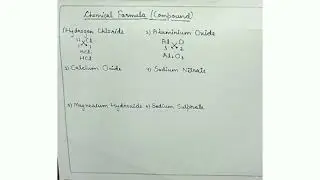 Chemical Formula (Compound)
1) Hydrogen Chloride
H Cl
1 1
HCl
HCl
2) Aluminium Oxide
Al O
3 2
Al2O3
3) Calcium Oxide
4) Sodium Nitrate
5) Magnesium Hydroxide
6) Sodium Sulphate